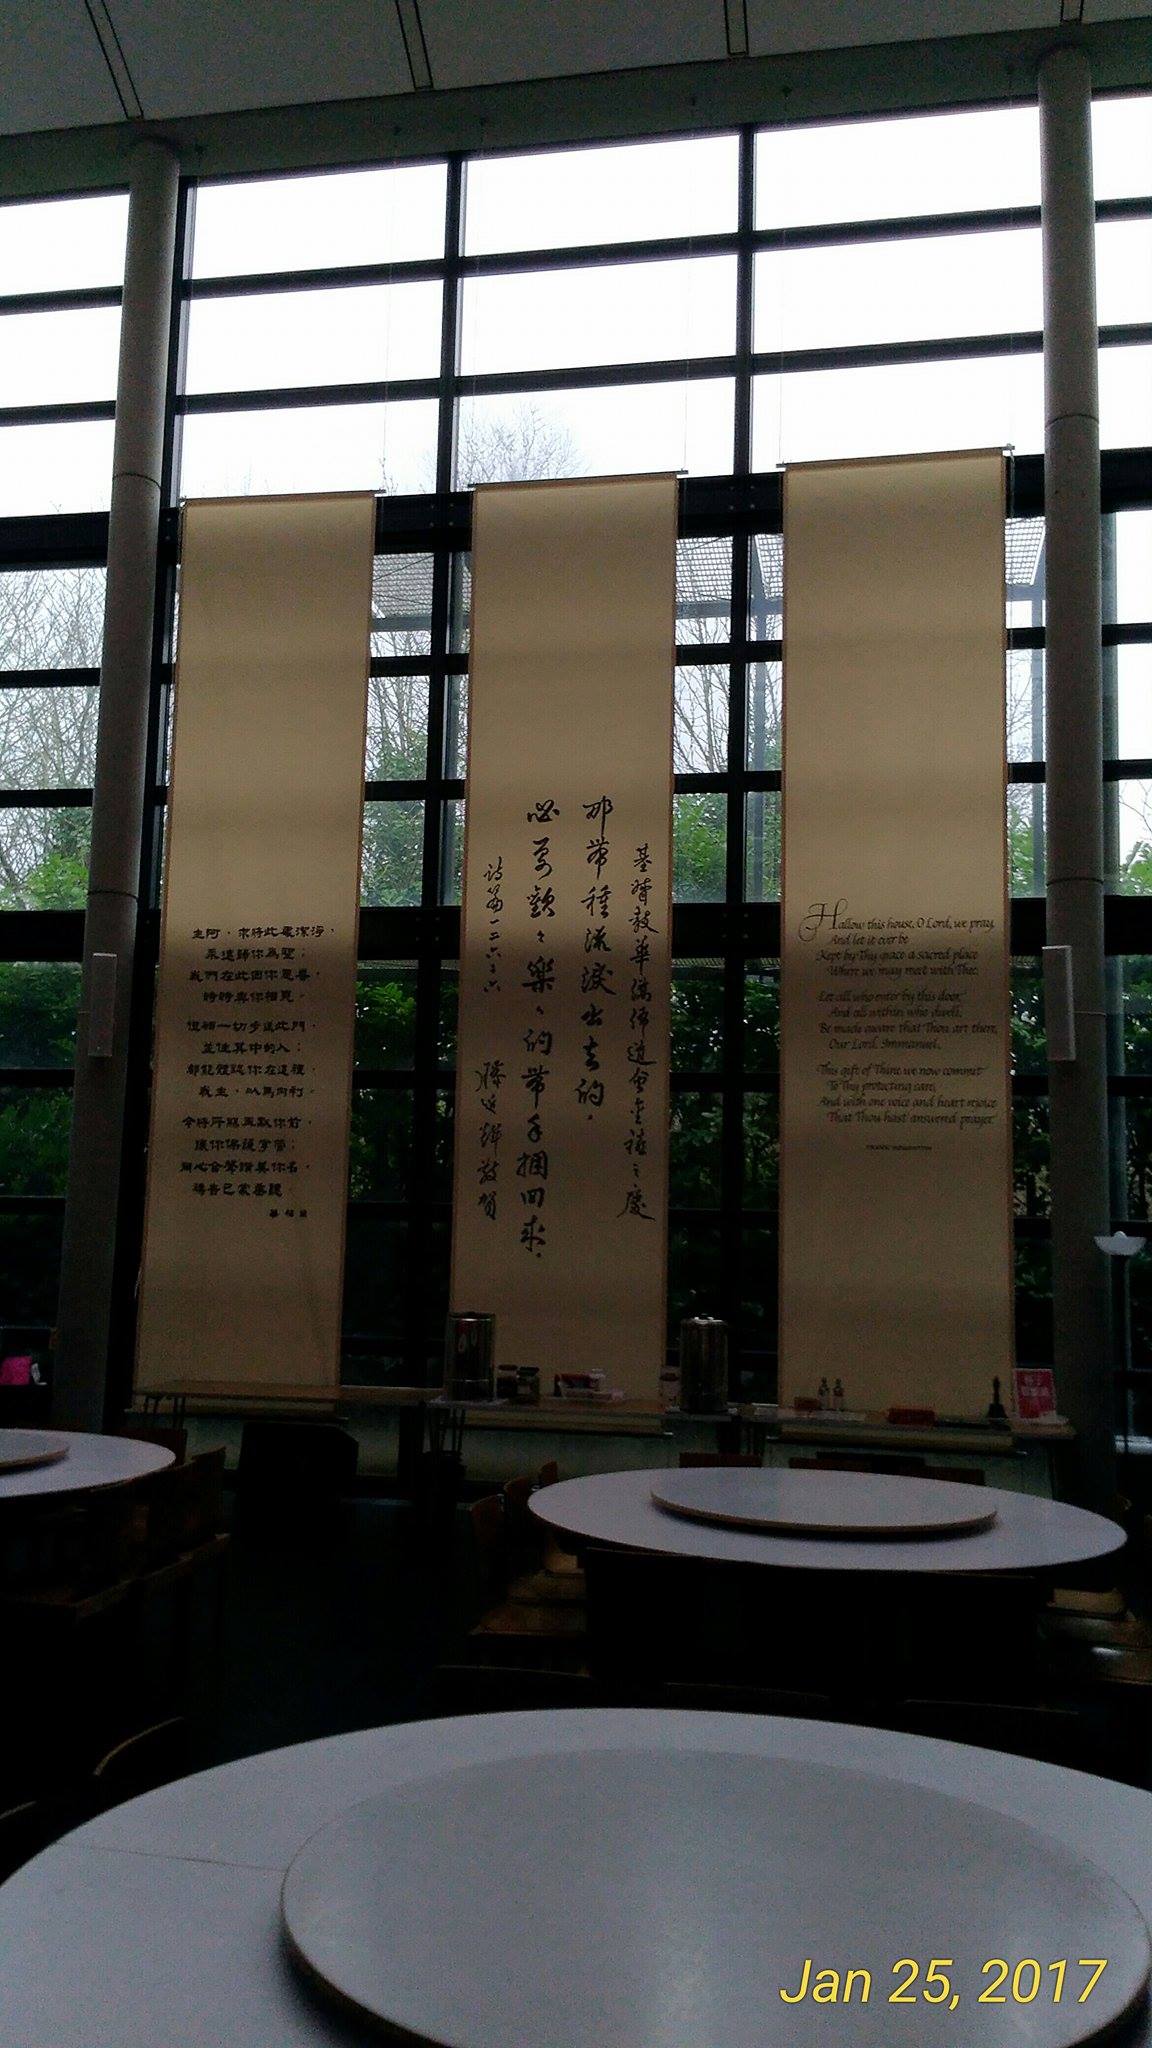 主阿,求將此處潔淨,
永遠歸你為聖;
我們在此因你恩善,
時時與你相見。
但願一切步進此門,
並住其中的人;
都能體認你在這裡,
我主,以馬內利。
今將所賜再獻你前,
讓你保護掌管;
同心合聲讚美你名,
禱告已蒙應允
基督教華僑佈道會金禧之慶
那帶種流淚出去的,
必要歡歡樂樂的帶禾捆回來。
詩篇一二六:六
滕近輝敬賀
Hallow this house, O Lord, we pray,
And let it ever be
Kept by Thy grace a sacred place
Where we may meet with Thee.
Let all who enter by this door,
And all within who dwell,
Be made aware that Thou art there,
Our Lord, Immanuel.
This gift of Thine we now commit
To Thy protecting care,
And with one voice and heart rejoice
That Thou hast answered prayer.
Jan 25, 2017